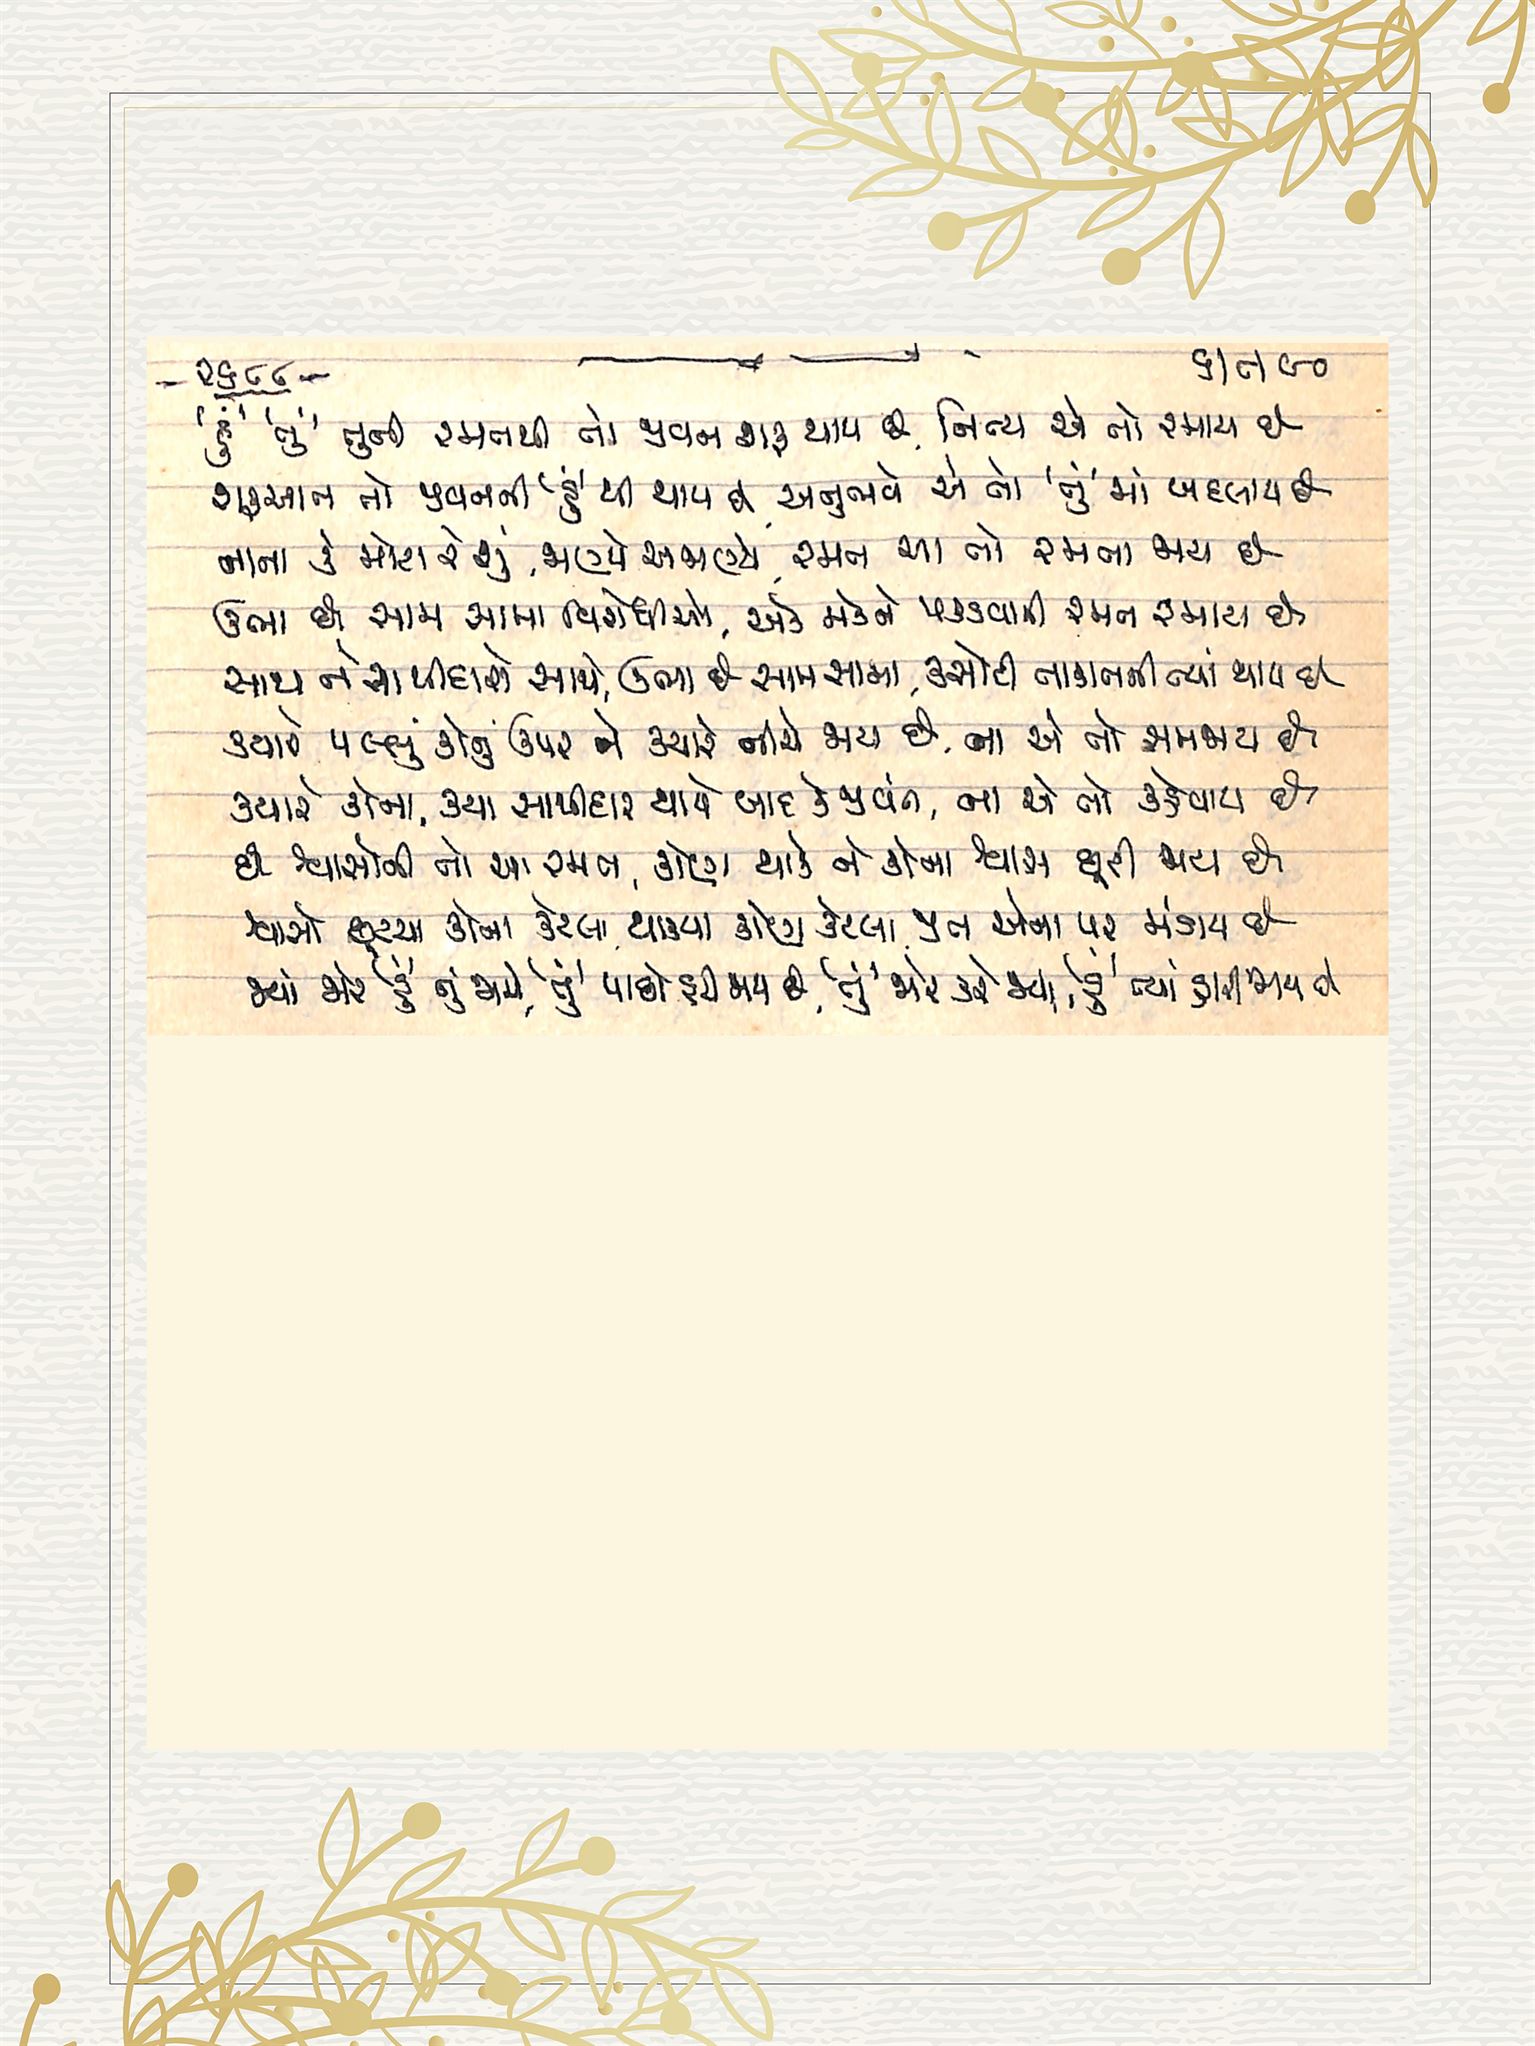 - ૨૬૮૮ -
૬|૮|૯૦
'હું' 'તું' તુની રમતથી તો જીવન શરૂ થાય છે, નિત્ય એ તો રમાય છે
શરૂઆત તો જીવનની 'હું' થી થાય છે, અનુભવે એ તો 'તું' માં બદલાય છે
નાના કે મોટા રે શું, જાણ્યે અજાણ્યે, રમત આ તો રમતા જાય છે
ઊભા છે સામ સામા વિરોધીઓ, એક મેકને પકડવાની રમત રમાય છે
સાથ ને સાથીદારો સાથે, ઊભા છે સામ સામા, કસોટી તાકાતની ત્યાં થાય છે
ક્યારે પલ્લું કોનું ઉપર ને ક્યારે નીચે જાય છે, ના એ તો સમજાય છે
ક્યારે કોના, ક્યા સાથીદાર થાયે બાદ કે જીવંત, ના એ તો કહેવાય છે
છે શ્વાસોની તો આ રમત, કોણ થાકે ને કોના શ્વાસ છૂટી જાય છે
શ્વાસો છૂટયા કોના કેટલા, થાક્યા કોણ કેટલા, જીત એના પર મંડાય છે
જ્યાં જોર 'હું' નું જામે, 'તું' પાછો હટી જાય છે, 'તું' જોર કરે જ્યાં, 'હું' ત્યાં હારી જાય છે